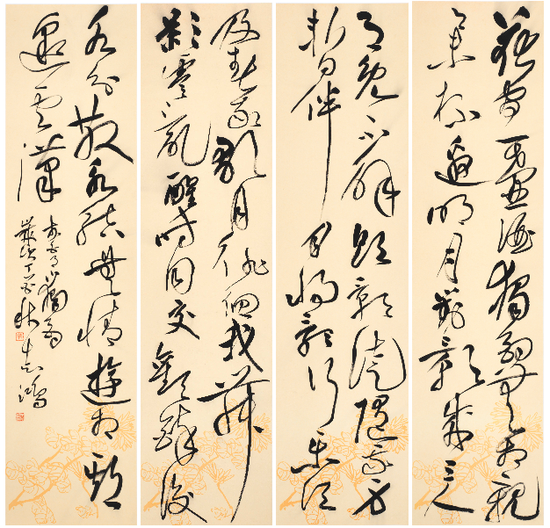 花間一壺酒獨酌無相親
舉杯邀明月對影成三人
月既不解飲影徒隨我身
暫伴月將影行樂須
及春我歌月徘徊我舞
影零亂醒時同交歡醉後
各分散永結無情遊相期
邈雲漢
李白月下獨酌
歲次丁